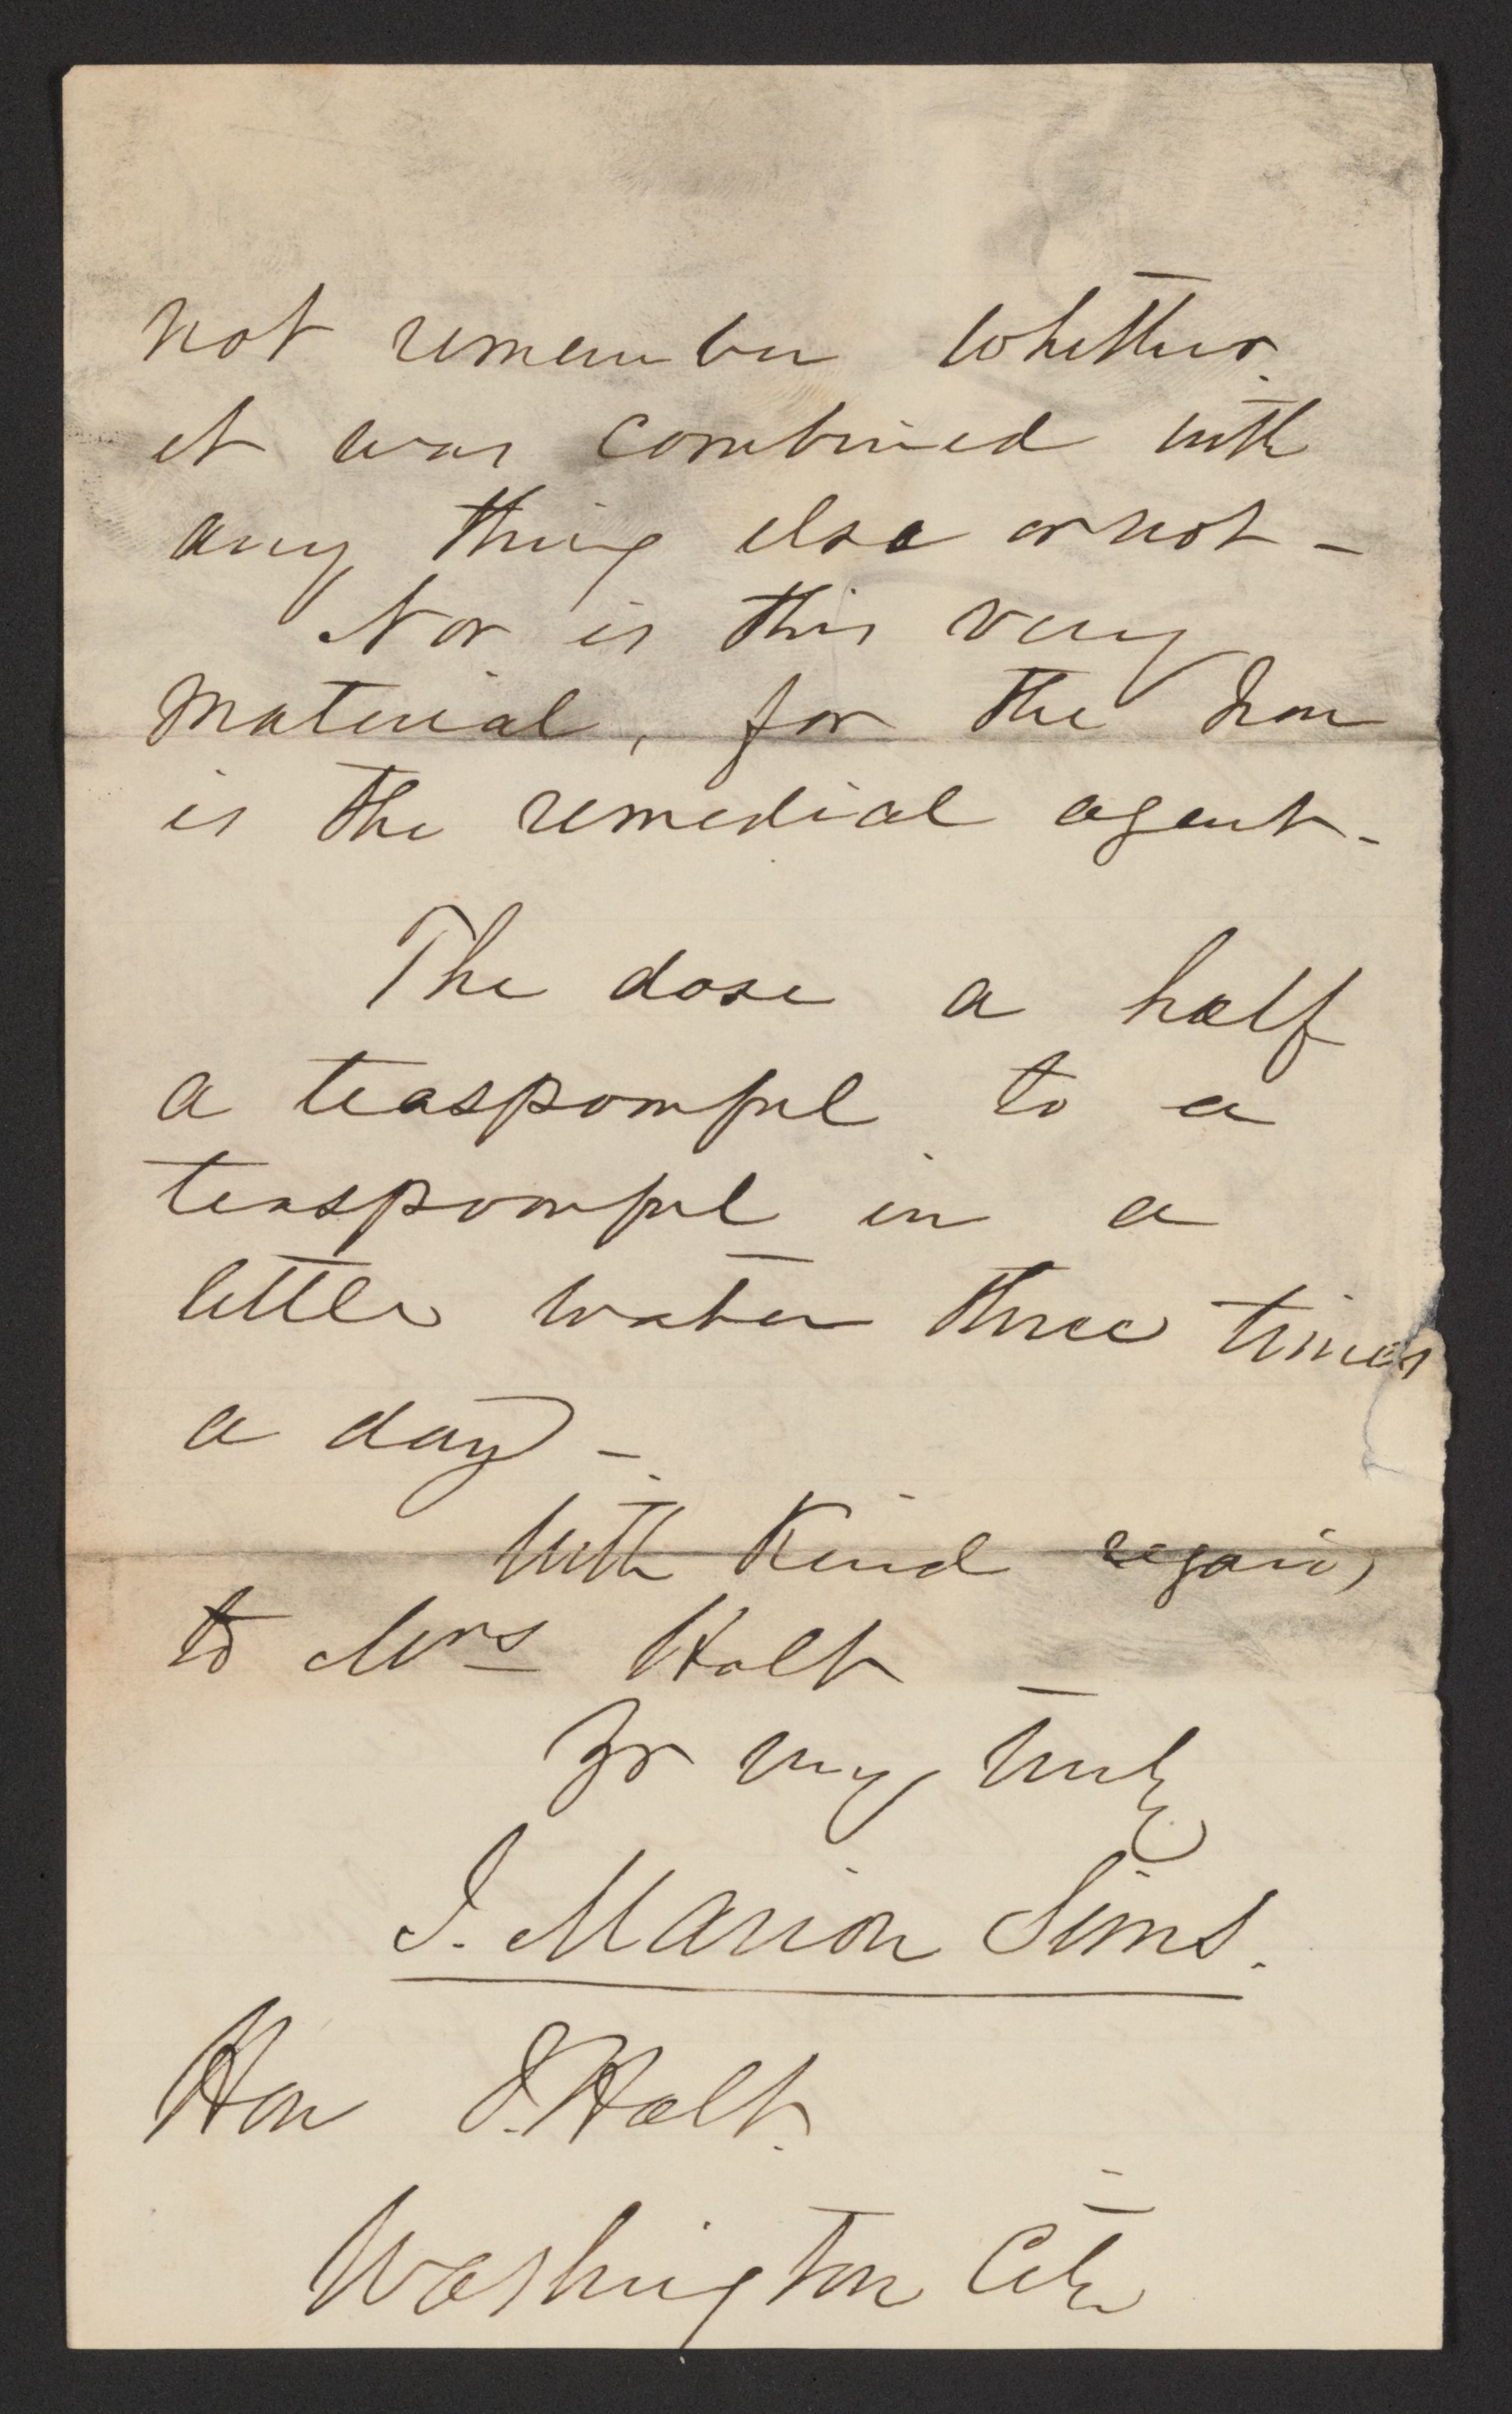 not remember whether
it was combined with
any thing else or not -
Nor is this very
material, for the Iron
is the remedial agent -
The dose a half
a teaspoonful to a
teaspoonful in a
little water three times
a day -
With Kind regards
to Mrs Holt
Yr very truly
J. Marion Sims.
Hon J. Holt.
Washington City